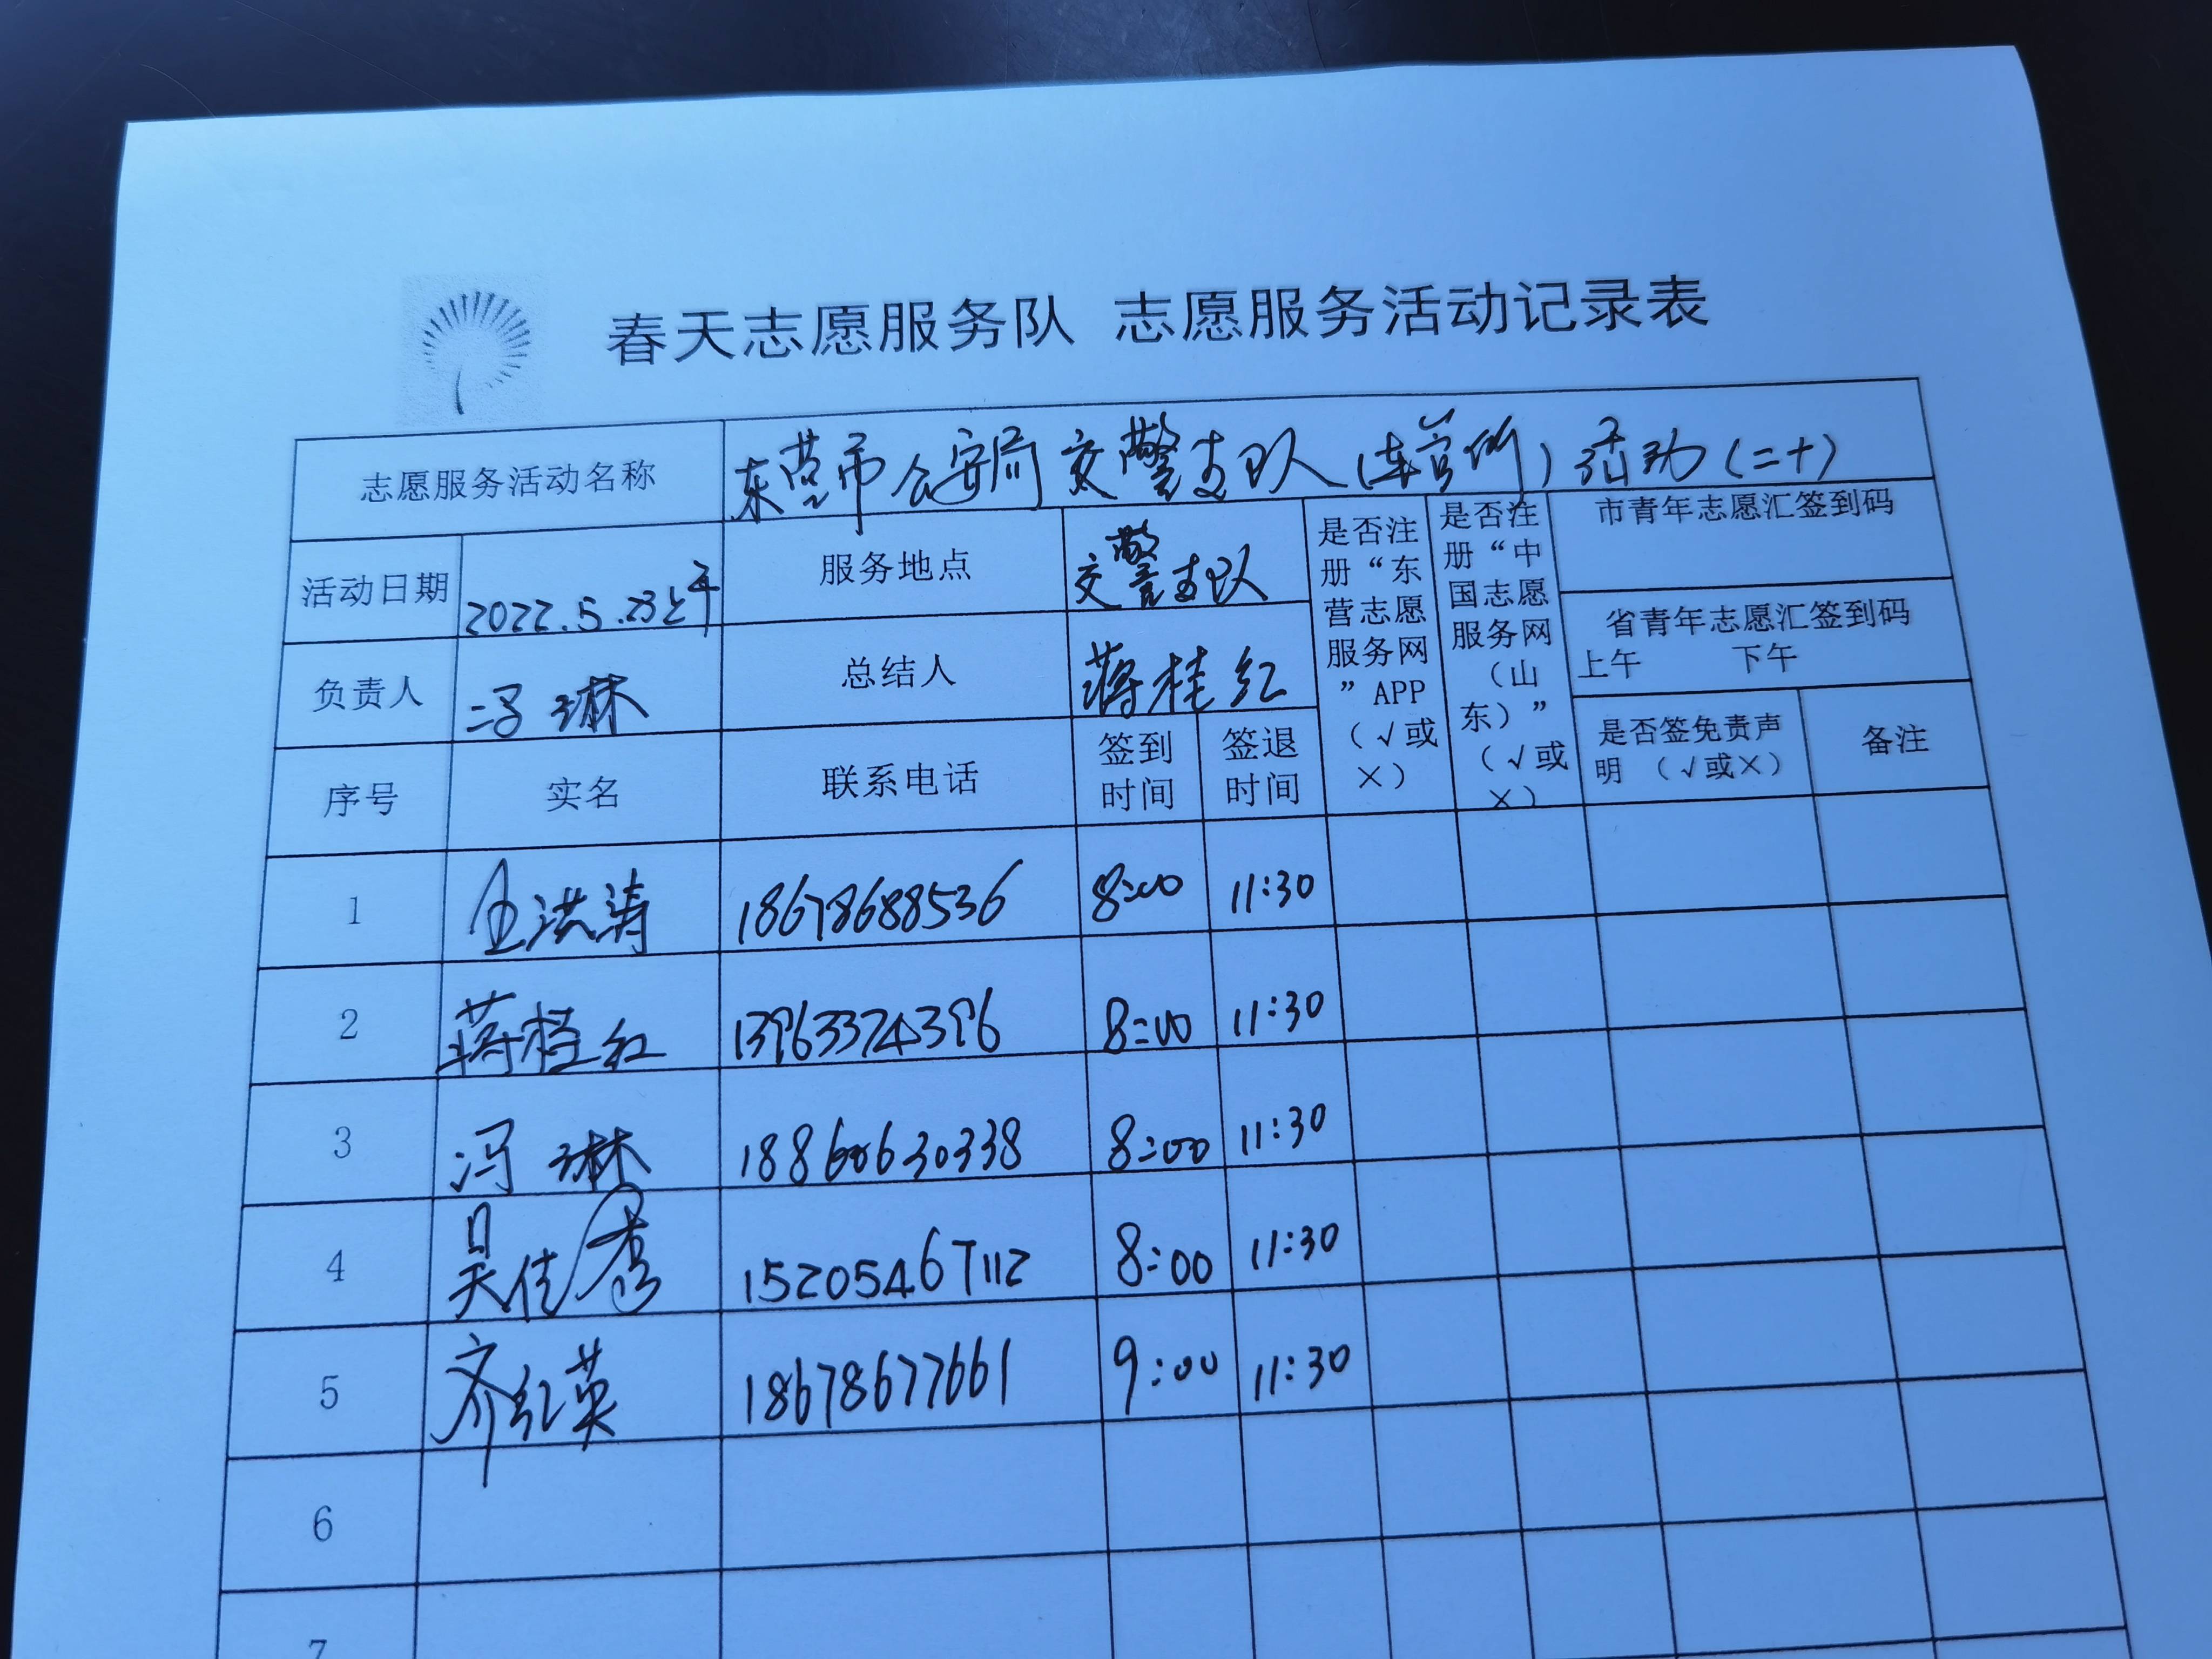 春天志愿服务队 志愿服务活动记录表
志愿服务活动名称 东营市公安局交警支队(车管所)活动(二十)
活动日期 2022.5.23上午 服务地点 交警支队
是否注册“东营志愿服务网”APP（√或×）
是否注册“中国志愿服务网（山东）”（√或×）
市青年志愿汇签到码
省青年志愿汇签到码
上午 下午
负责人 冯琳 总结人 蒋桂红
序号 实名 联系电话 签到时间 签退时间 是否签免责声明（√或×） 备注
1 王洪涛 18678688536 8:00 11:30
2 蒋桂红 13963374396 8:00 11:30
3 冯琳 18860630338 8:00 11:30
4 吴佳秀 15205467112 8:00 11:30
5 齐红英 18678677661 9:00 11:30
6
7